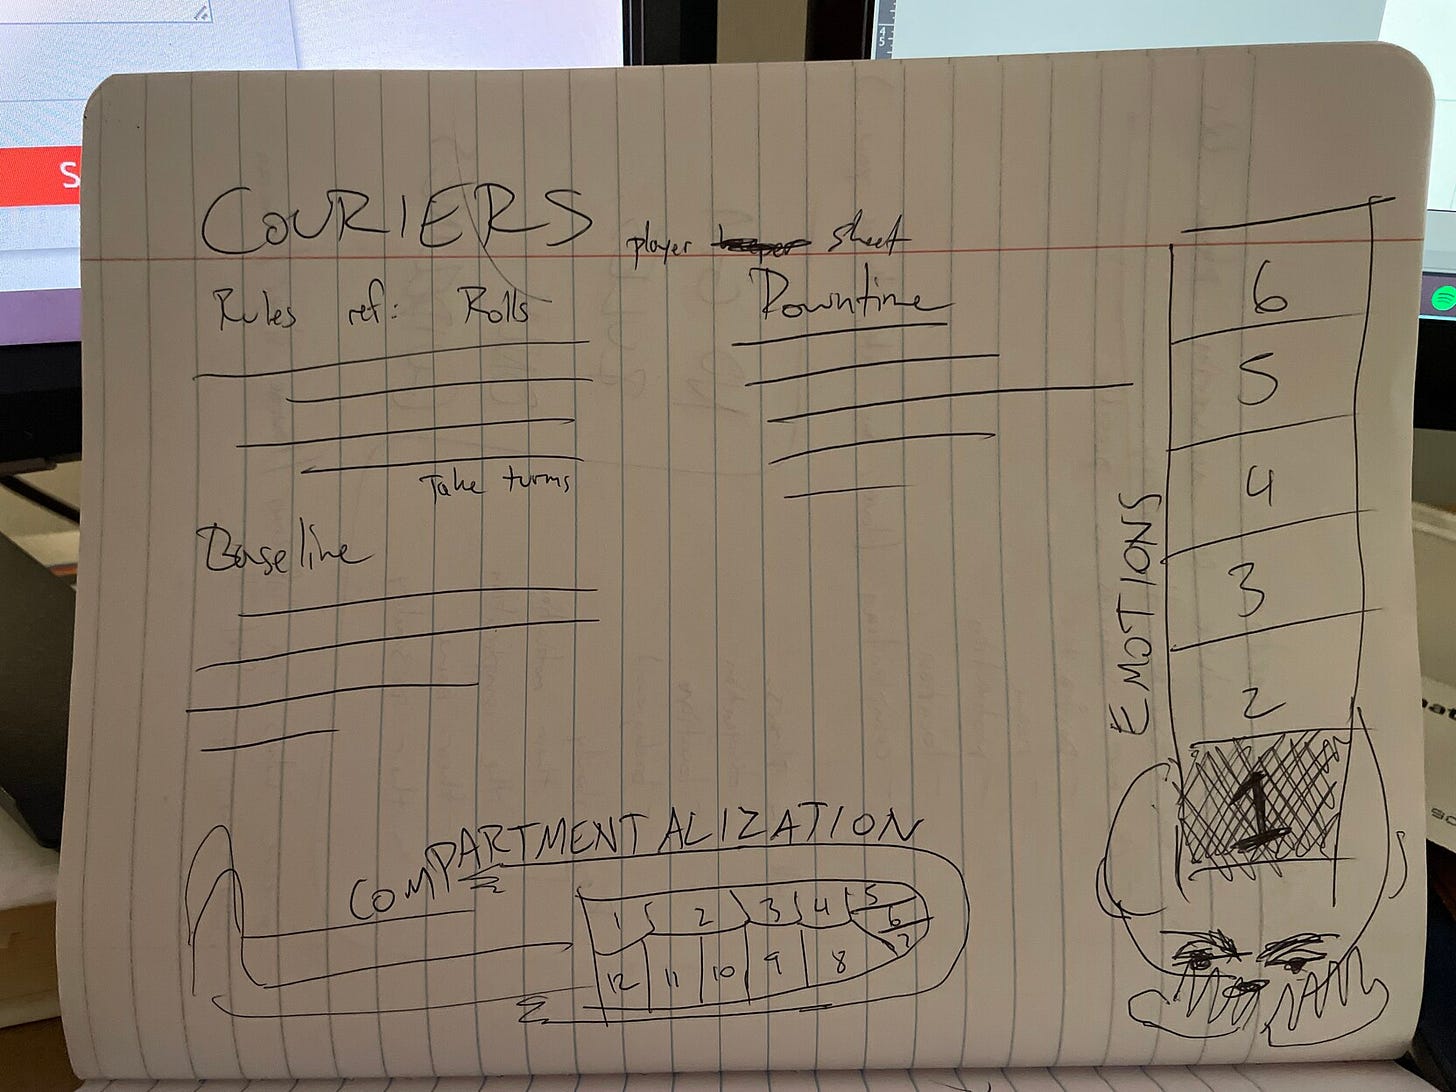 COURIERS player sheet
Rules ref: Rolls
Take turns
Baseline
Downtime
COMPARTMENTALIZATION
1 2 3 4 5 6 7
12 11 10 9 8
EMOTIONS
6
5
4
3
2
1
S